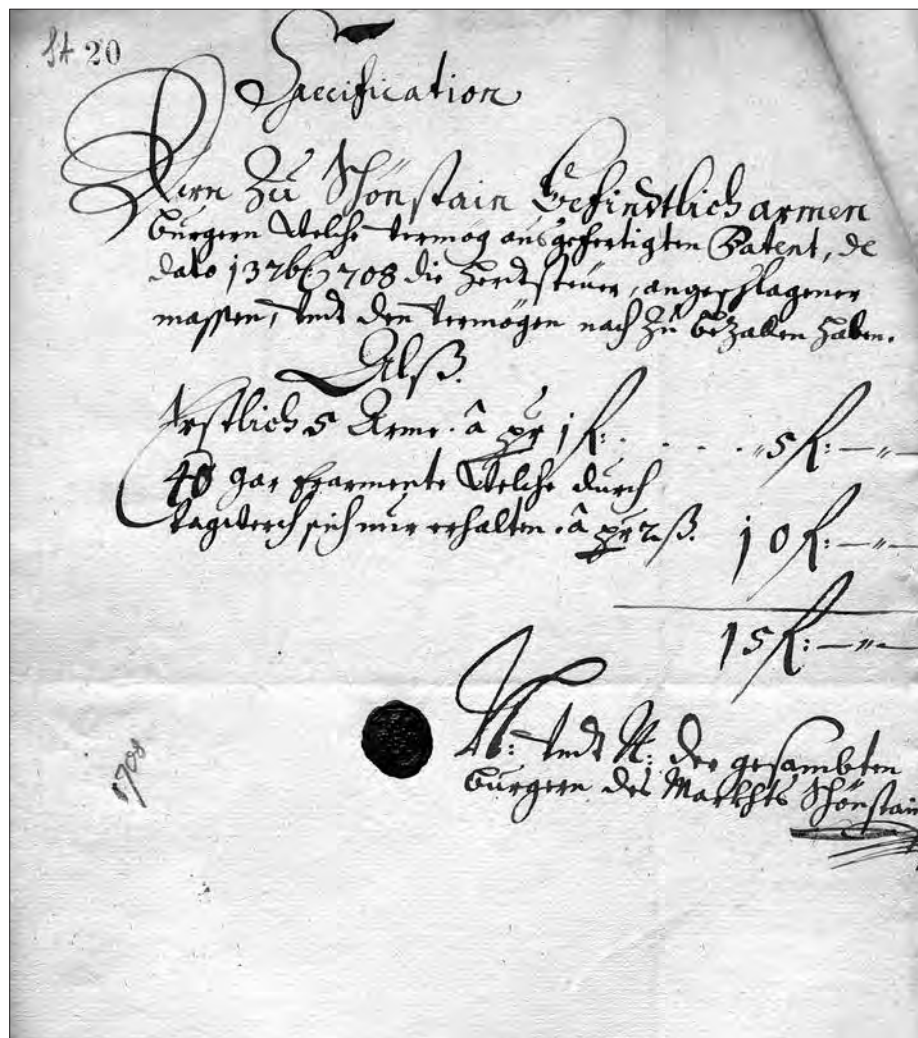 St 20
Specification
Deren Zu Schönstain Befindtlich armen
burgern Welche vermög ausgefertigten Patent, de
dato 13 7bris 708 die Herdtsteuer, angeschlagener
massen, vndt den vermögen nach Zu bezallen haben.
Alß.
Erstlich 5 Arme. â pr 1 fl: . . . . „ 5 fl: —„—
40 gar Welche durch
tagwerch sich nur erhalten. â pr 2 ß. 10 fl: —„—
15 fl: —„—
N: vndt N: der gesambten
burgern des Markhts Schönstain
1708